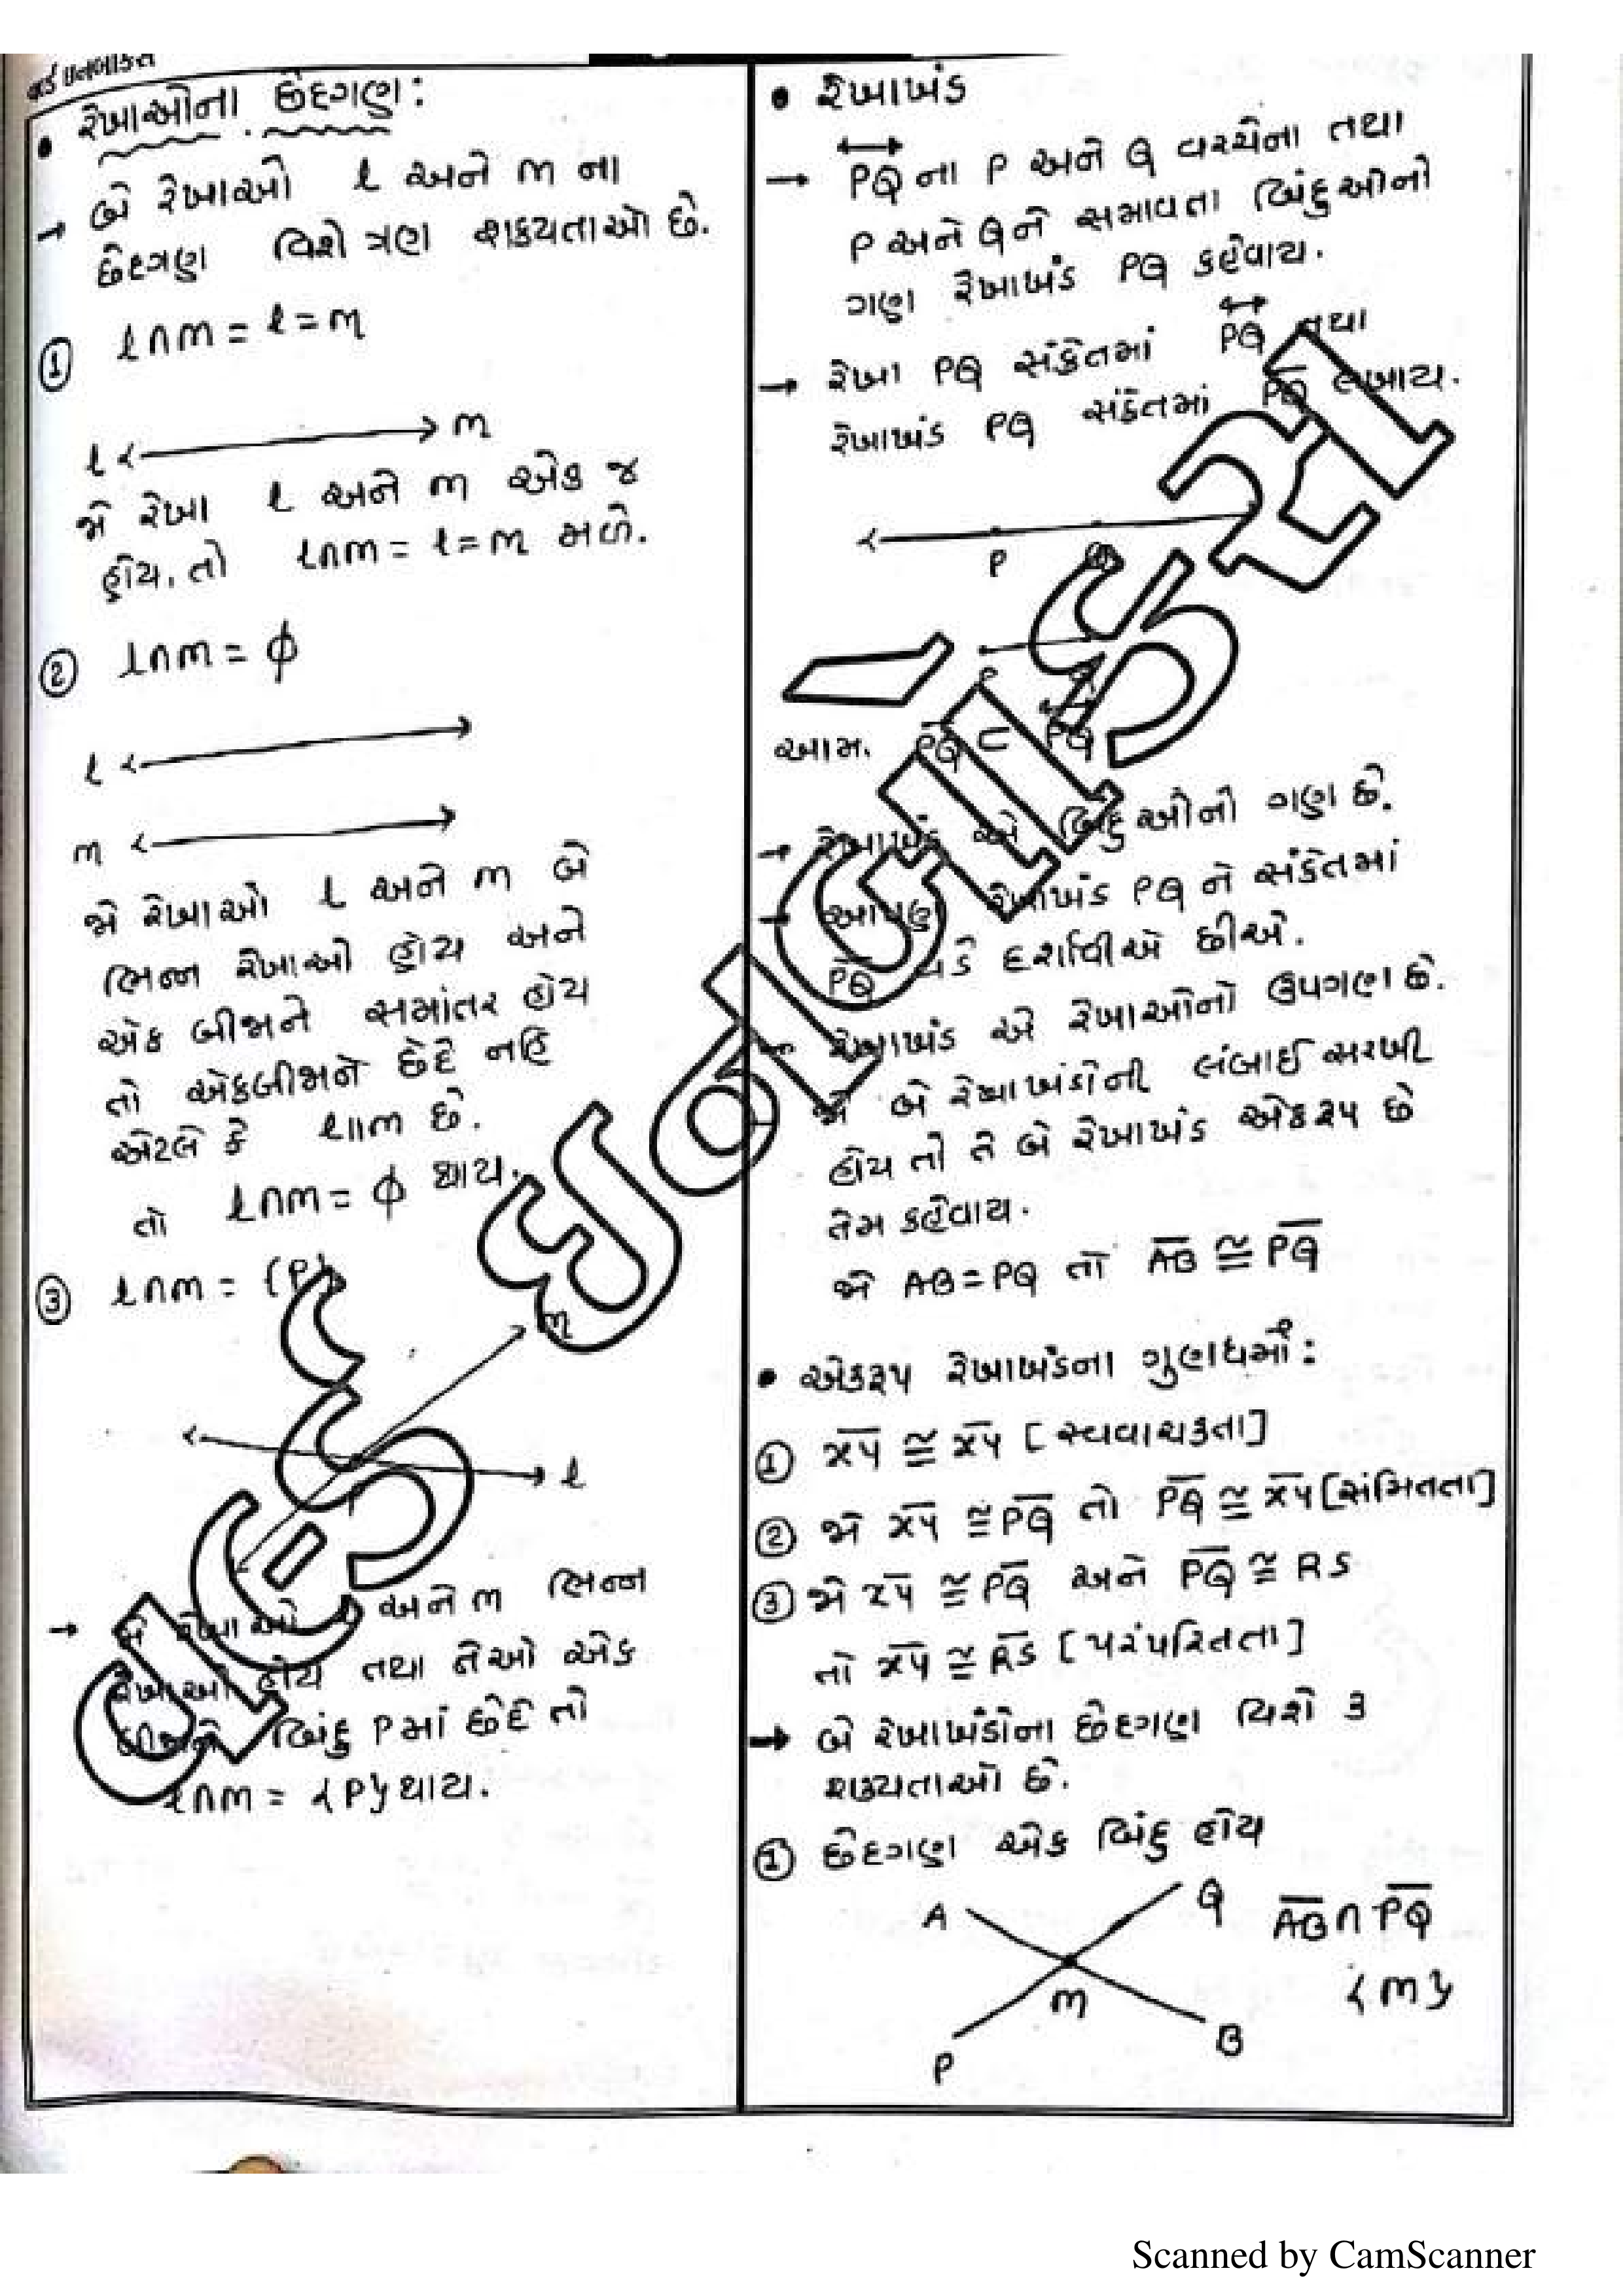 • રેખાઓના છેદગણ :
→ બે રેખાઓ l અને m ના
છેદગણ વિશે ત્રણ શક્યતાઓ છે.
① l∩m = l = m
l m
જો રેખા l અને m એક જ
હોય, તો l∩m = l = m મળે.
② l∩m = ϕ
l
m
જો રેખાઓ l અને m બે
ભિન્ન રેખાઓ હોય અને
એક બીજાને સમાંતર હોય
તો એકબીજાને છેદે નહિ
એટલે કે l॥m છે.
તો l∩m = ϕ થાય.
③ l∩m = {P}
m
l
→ બે રેખાઓ અને m ભિન્ન
રેખાઓ હોય તથા તેઓ એક
બીજાને બિંદુ P માં છેદે તો
l∩m = {P} થાય.
• રેખાખંડ
→ P͞Q ના P અને Q વચ્ચેના તથા
P અને Q ને સમાવતા બિંદુઓનો
ગણ રેખાખંડ PQ કહેવાય.
→ રેખા PQ સંકેતમાં PQ તથા
રેખાખંડ PQ સંકેતમાં PQ લખાય.
P Q
P Q
આમ. PQ ⊂ PQ
→ રેખાખંડ એ બિંદુઓનો ગણ છે.
→ આપણે રેખાખંડ PQ ને સંકેતમાં
PQ વડે દર્શાવીએ છીએ.
→ રેખાખંડ એ રેખાઓનો ઉપગણ છે.
જો બે રેખાખંડોની લંબાઈ સરખી
હોય તો તે બે રેખાખંડ એકરૂપ છે
તેમ કહેવાય.
જો AB = PQ તો AB ≅ PQ
• એકરૂપ રેખાખંડના ગુણધર્મો :
① XY ≅ XY [સ્વવાચકતા]
② જો XY ≅ PQ તો PQ ≅ XY [સંમિતતા]
③ જો XY ≅ PQ અને PQ ≅ RS
તો XY ≅ RS [પરંપરિતતા]
→ બે રેખાખંડોના છેદગણ વિશે 3
શક્યતાઓ છે.
① છેદગણ એક બિંદુ હોય
A Q AB ∩ PQ
M {M}
P B
Scanned by CamScanner